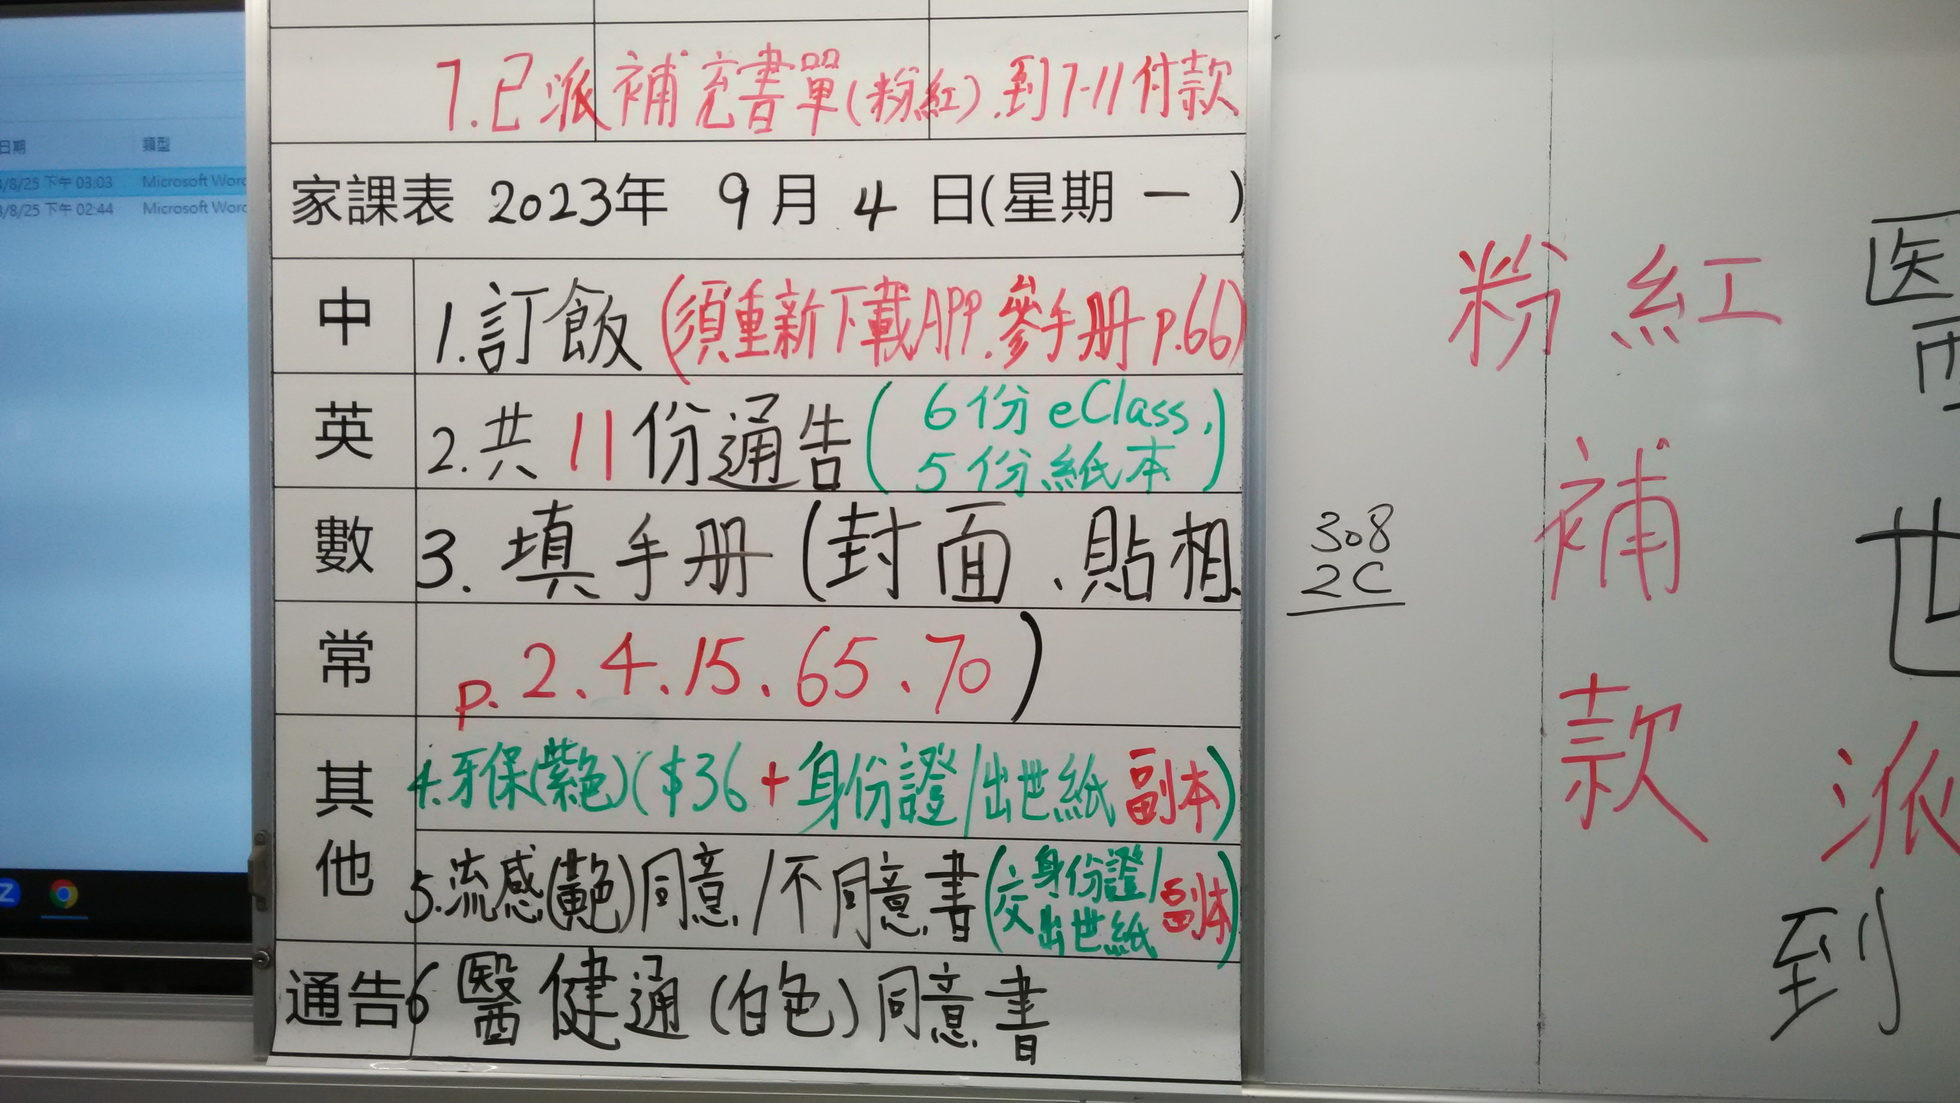 7.已派補充書單(粉紅).到7-11付款
家課表 2023年 9月4日(星期一)
中
1.訂飯(須重新下載APP.參手冊p.66)
英
2.共11份通告(6份eClass,
5份紙本)
數
3.填手冊(封面、貼相
常
p.2、4、15、65、70)
其他
4.牙保(紫色)($36+身份證/出世紙副本)
5.流感(黃色)同意/不同意書(交身份證/出世紙副本)
通告
6醫健通(白色)同意書
日期 類型
/8/25 下午 03:03 Microsoft Word
/8/25 下午 02:44 Microsoft Word
308
2C
粉紅
補
款
医
世
派
到